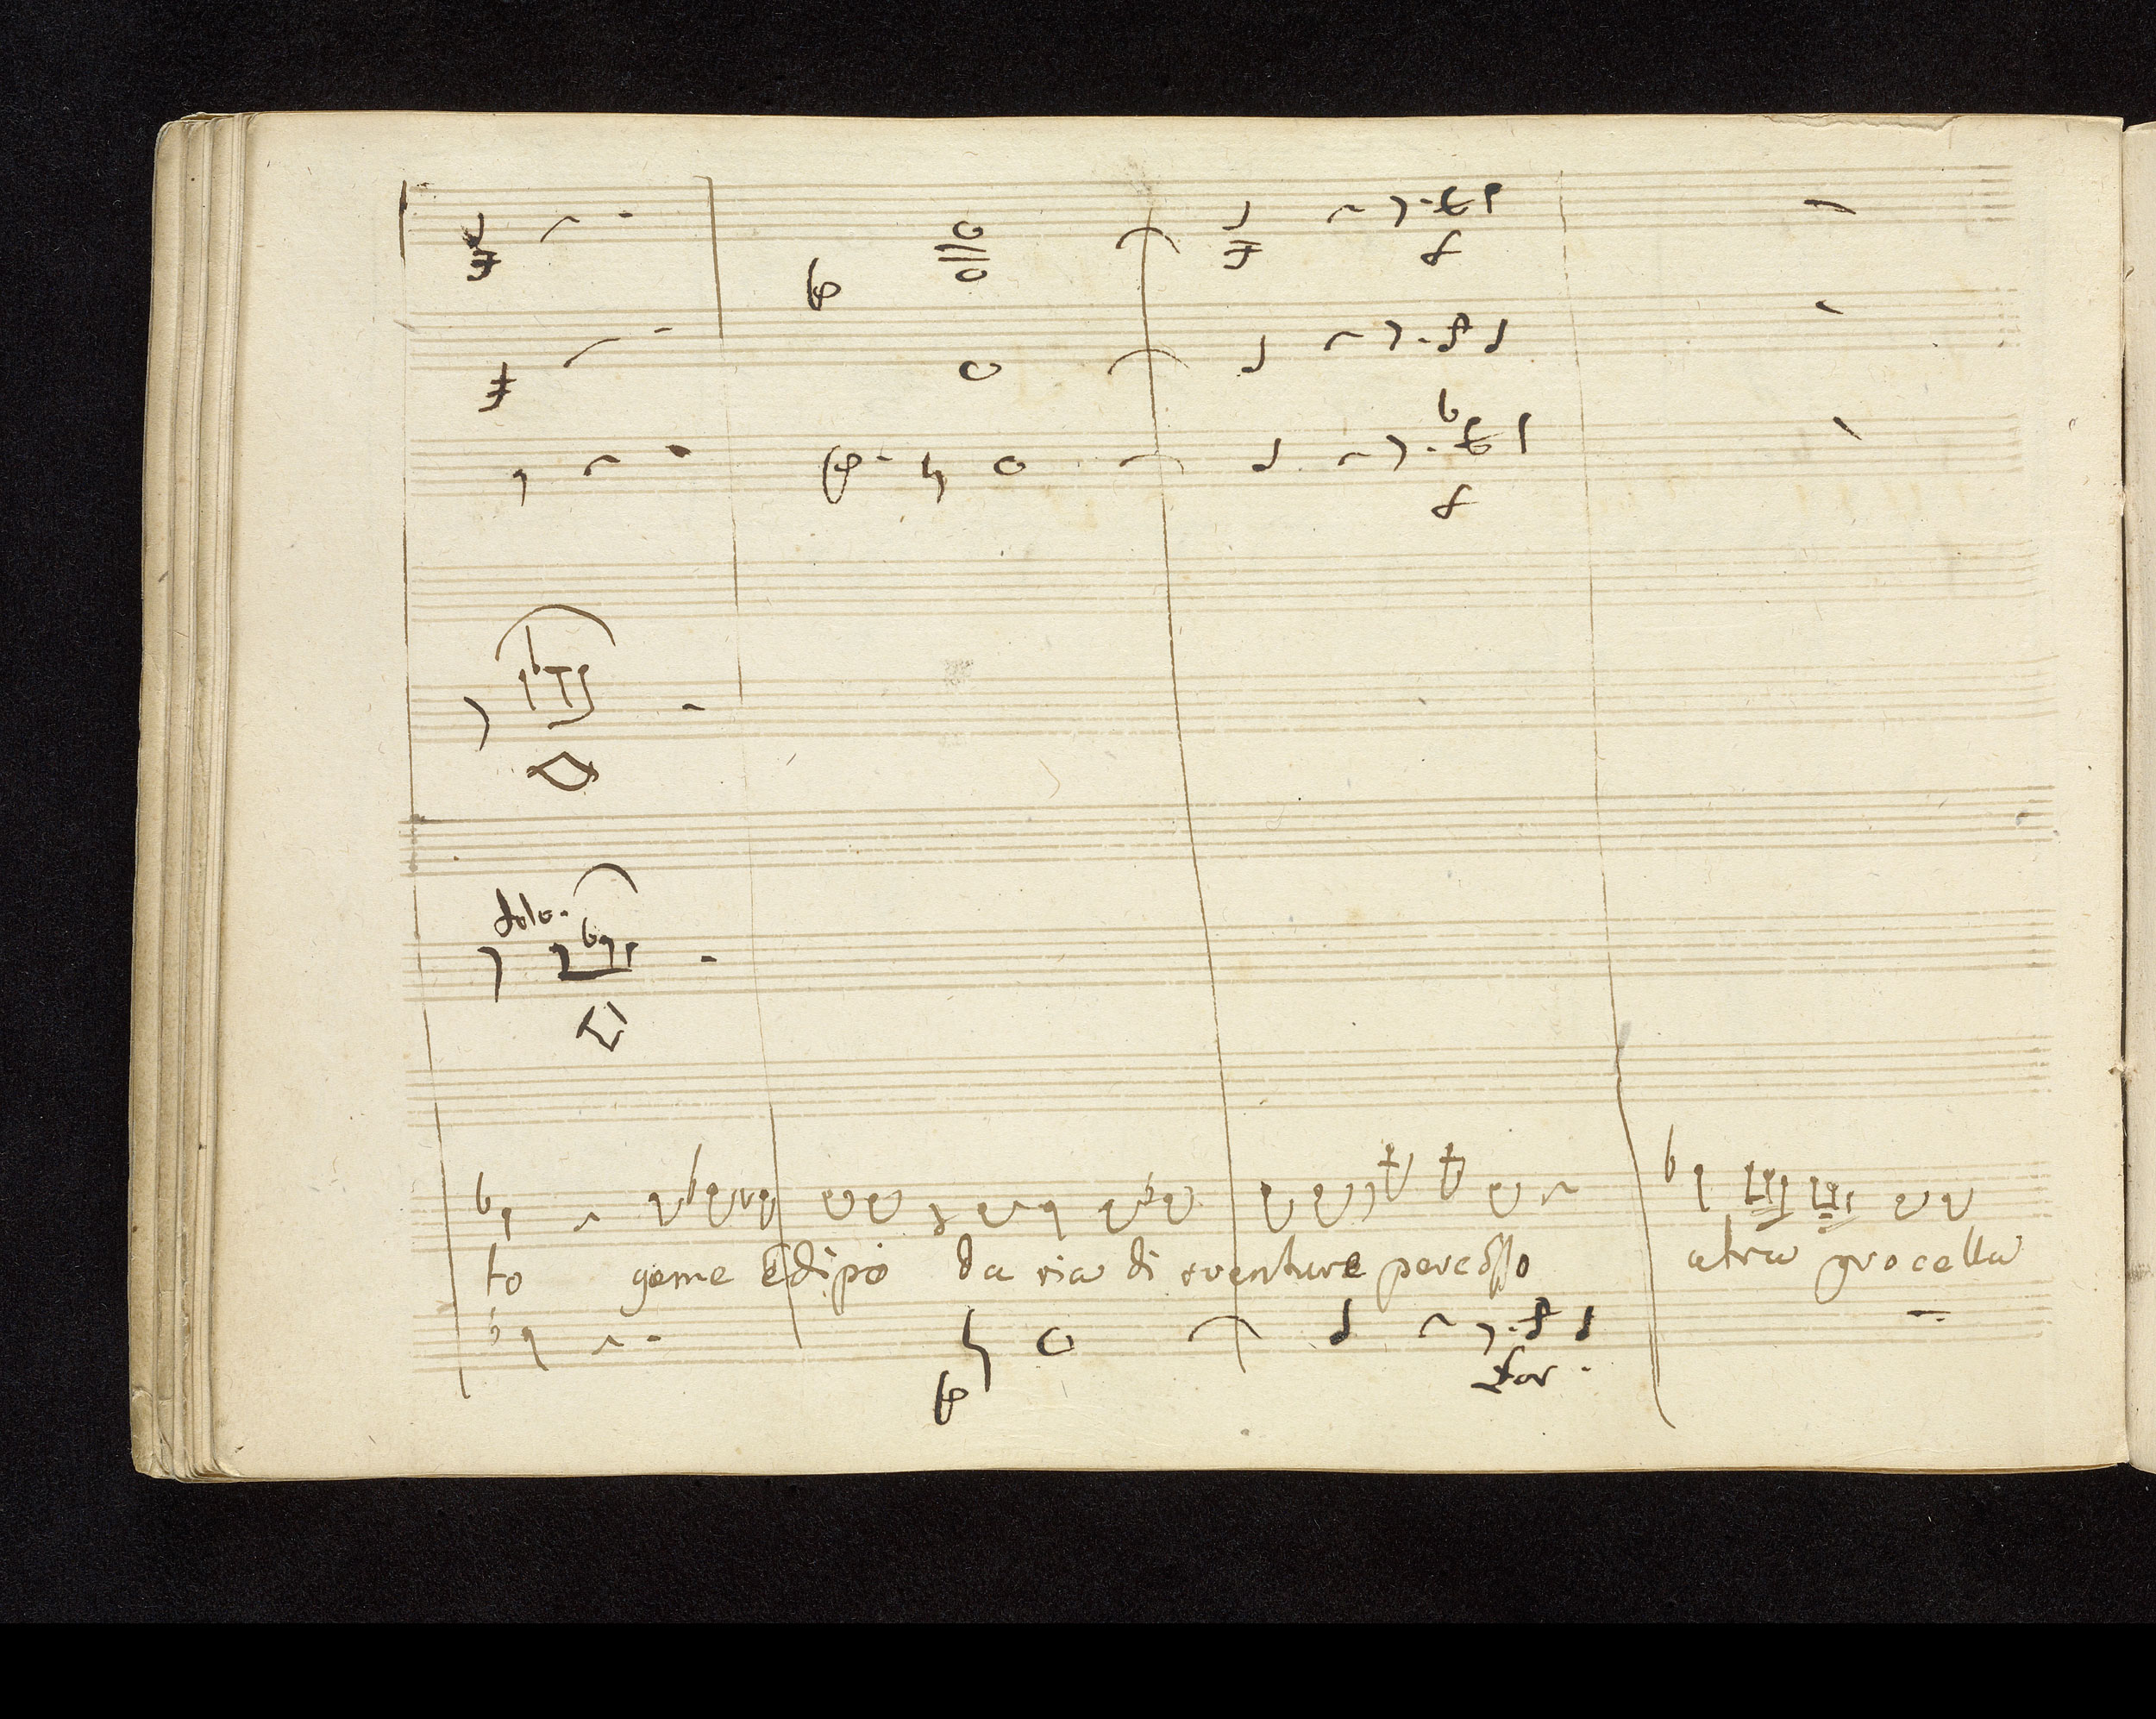 f
f
dolo.
to geme Edipo da ria di sventure percosso atra procella
for.